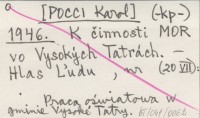 a
[POCCI Karol] (-kp-)
1946. K činnosti MOR
vo Vysokých Tatrách. —
Hlas Ľudu, nr (20 VII):
Praca oświatowa w
gminie Vysoké Tatry.